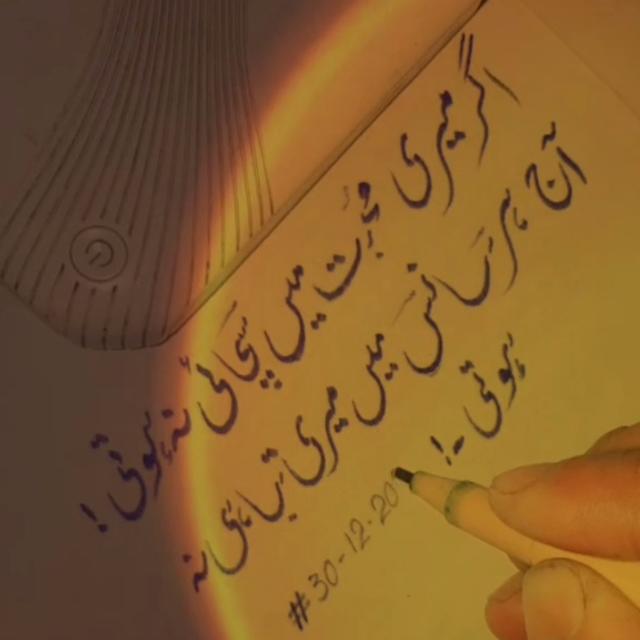 اگر میری محبّت میں سَچّائی نہ ہوتی !
آج ہر سَانس میں میری تَباہی نہ
ہوتی ۔!
#30-12-20